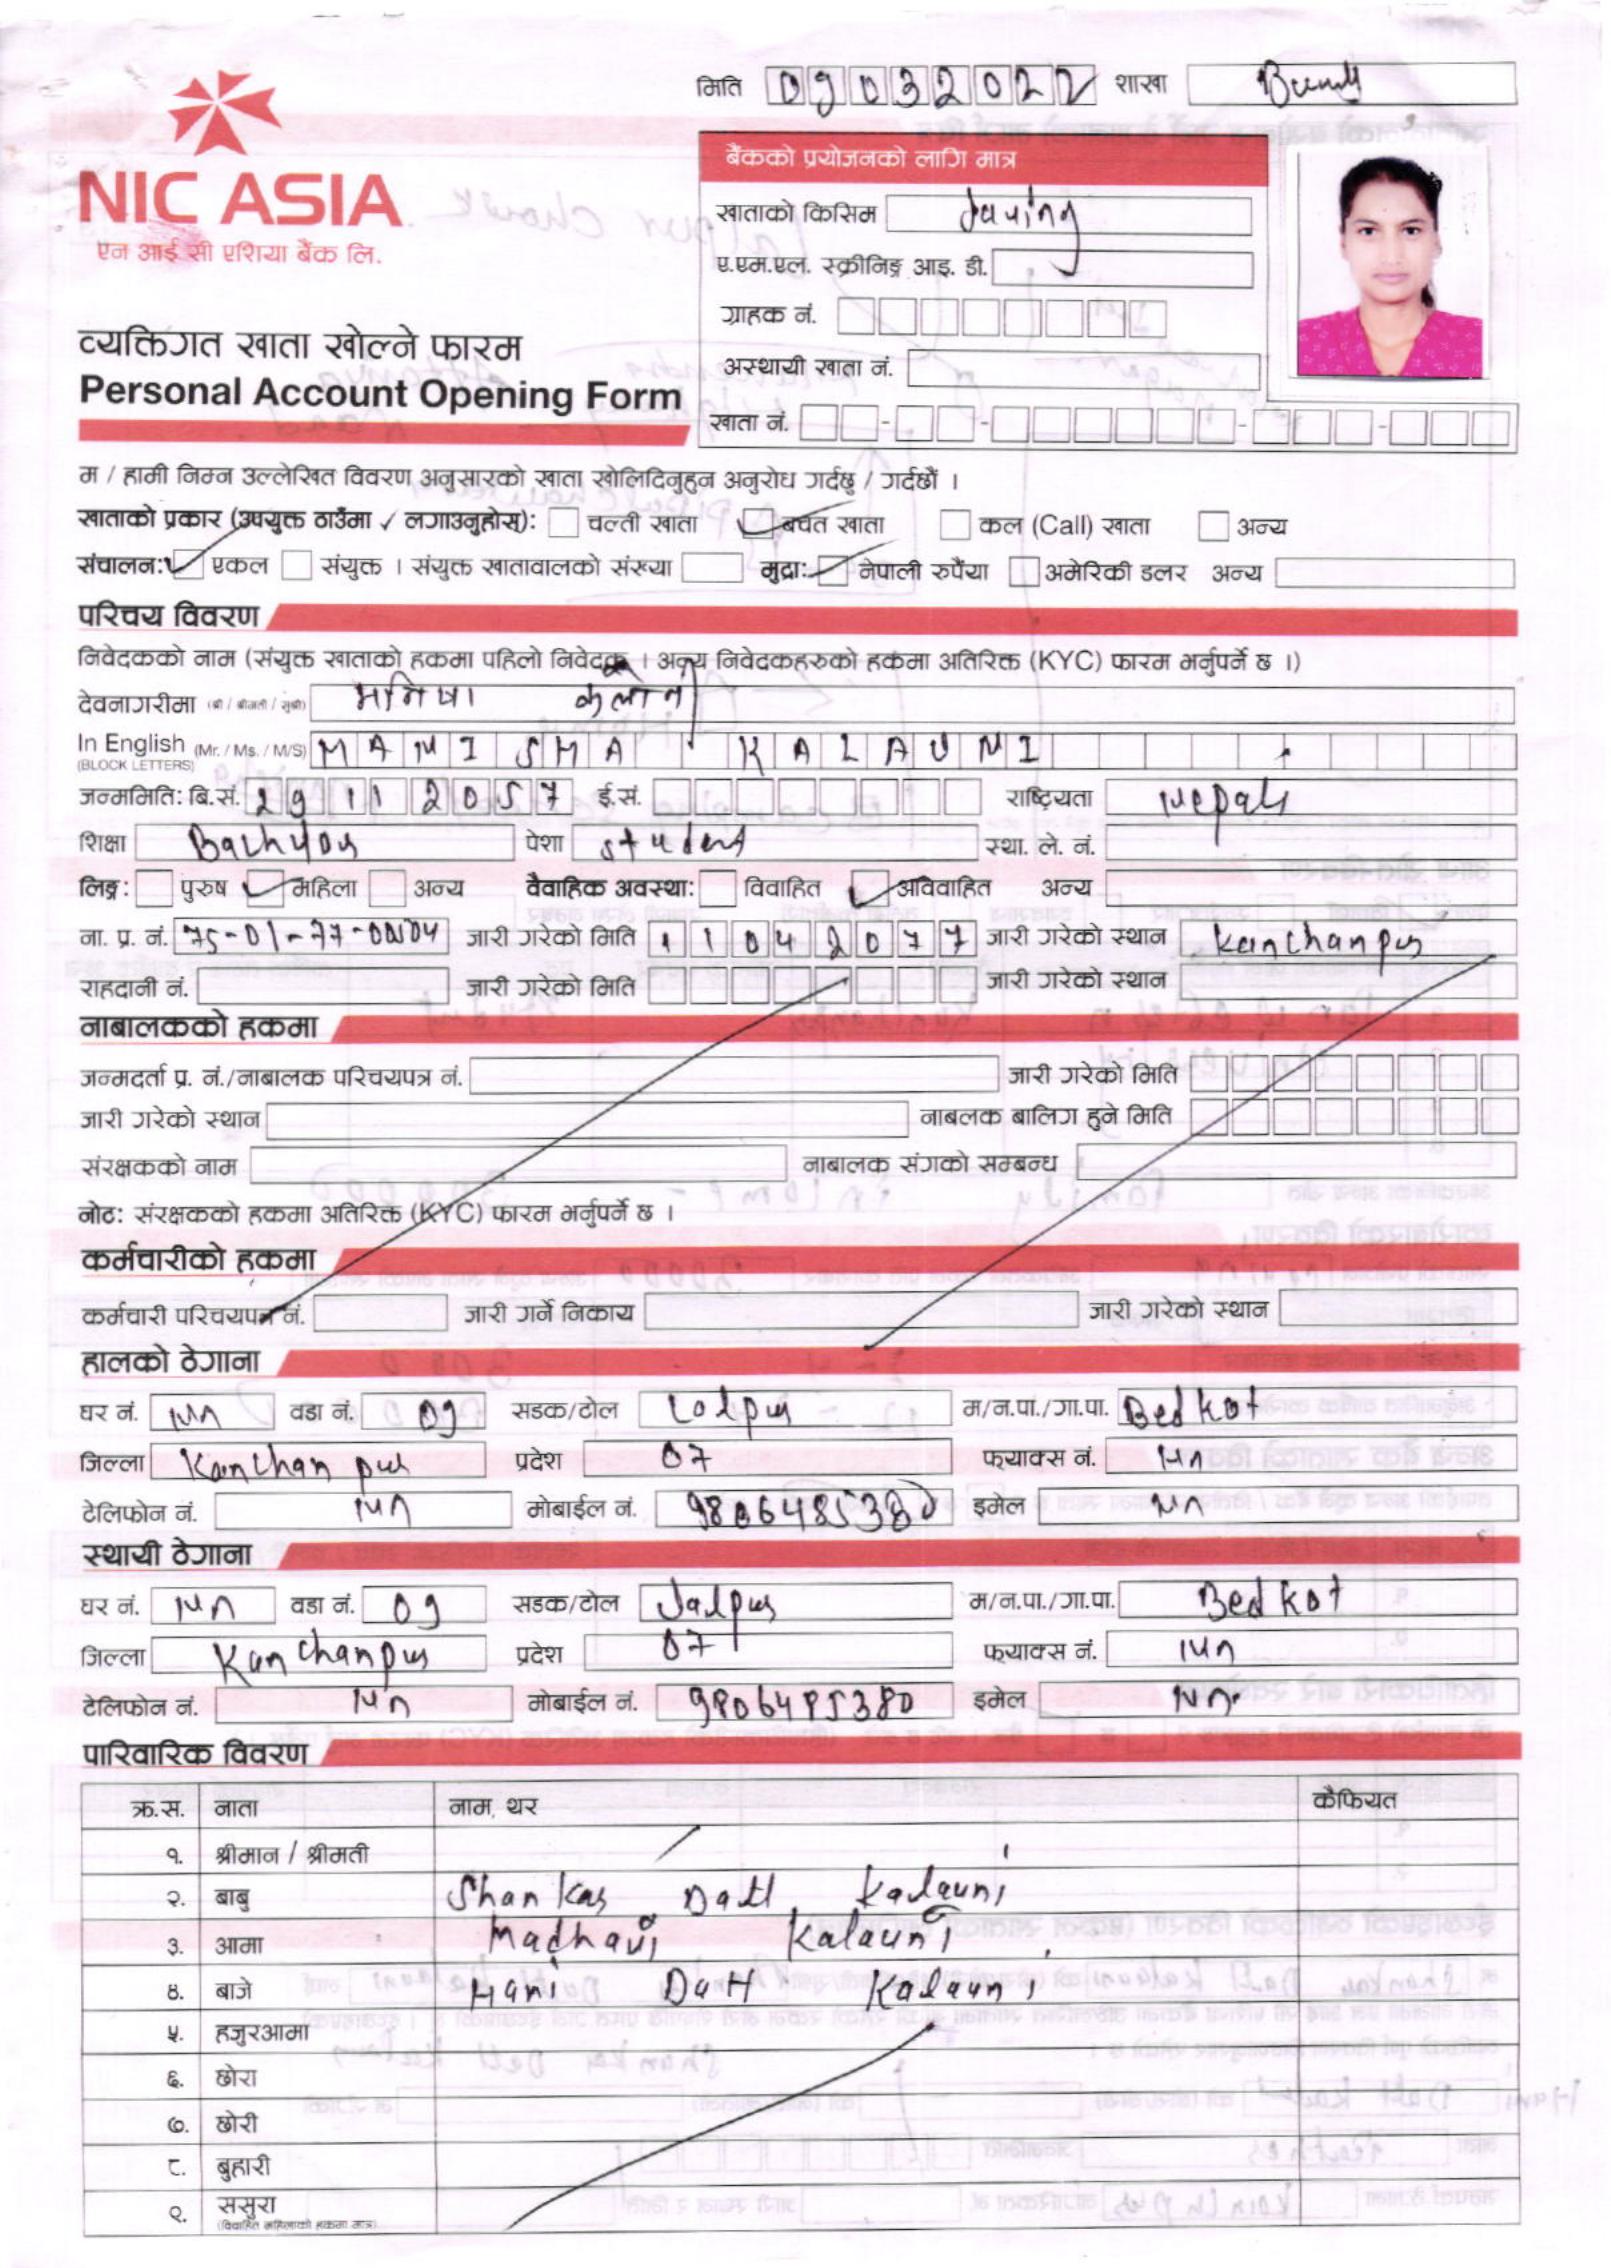 मिति 09032022 शाखा
NIC ASIA
एन आई सी एशिया बैंक लि.
बैंकको प्रयोजनको लागि मात्र
खाताको किसिम Saving
ए.एम.एल. स्क्रीनिङ्ग आइ. डी.
ग्राहक नं.
अस्थायी खाता नं.
खाता नं.
व्यक्तिगत खाता खोल्ने फारम
Personal Account Opening Form
म / हामी निम्न उल्लेखित विवरण अनुसारको खाता खोलिदिनुहुन अनुरोध गर्दछु / गर्दछौं ।
खाताको प्रकार (उपयुक्त ठाउँमा ✓ लगाउनुहोस्): चल्ती खाता ✓ बचत खाता कल (Call) खाता अन्य
संचालन: ✓ एकल संयुक्त । संयुक्त खातावालको संख्या मुद्रा: ✓ नेपाली रुपैंया अमेरिकी डलर अन्य
परिचय विवरण
निवेदकको नाम (संयुक्त खाताको हकमा पहिलो निवेदक । अन्य निवेदकहरुको हकमा अतिरिक्त (KYC) फारम भर्नुपर्ने छ ।)
देवनागरीमा (श्री / श्रीमती / सुश्री) मनिषा कलौनी
In English (Mr. / Ms. / M/S) MANISHA KALAUNI
(BLOCK LETTERS)
जन्ममिति: बि.सं. 29112057 ई.सं. राष्ट्रियता Nepali
शिक्षा Bachelor पेशा student स्था. ले. नं.
लिङ्ग: पुरुष ✓ महिला अन्य वैवाहिक अवस्था: विवाहित ✓ अविवाहित अन्य
ना. प्र. नं. 75-01-77-00104 जारी गरेको मिति 11042077 जारी गरेको स्थान Kanchanpur
राहदानी नं. जारी गरेको मिति जारी गरेको स्थान
नाबालकको हकमा
जन्मदर्ता प्र. नं./नाबालक परिचयपत्र नं. जारी गरेको मिति
जारी गरेको स्थान नाबलक बालिग हुने मिति
संरक्षकको नाम नाबालक संगको सम्बन्ध
नोट: संरक्षकको हकमा अतिरिक्त (KYC) फारम भर्नुपर्ने छ ।
कर्मचारीको हकमा
कर्मचारी परिचयपत्र नं. जारी गर्ने निकाय जारी गरेको स्थान
हालको ठेगाना
घर नं. वडा नं. 09 सडक/टोल म/न.पा./गा.पा. Bedkot
जिल्ला Kanchanpur प्रदेश 07 फ्याक्स नं.
टेलिफोन नं. मोबाईल नं. 9806485380 इमेल
स्थायी ठेगाना
घर नं. वडा नं. 09 सडक/टोल म/न.पा./गा.पा. Bedkot
जिल्ला Kanchanpur प्रदेश 07 फ्याक्स नं.
टेलिफोन नं. मोबाईल नं. 9806485380 इमेल
पारिवारिक विवरण
क्र.स. नाता नाम, थर कैफियत
१. श्रीमान / श्रीमती
२. बाबु Shankar Datt Kalauni
३. आमा Madhavi Kalauni
४. बाजे Hari Datt Kalauni
५. हजुरआमा
६. छोरा
७. छोरी
८. बुहारी
९. ससुरा
(विवाहित महिलाको हकमा मात्र)